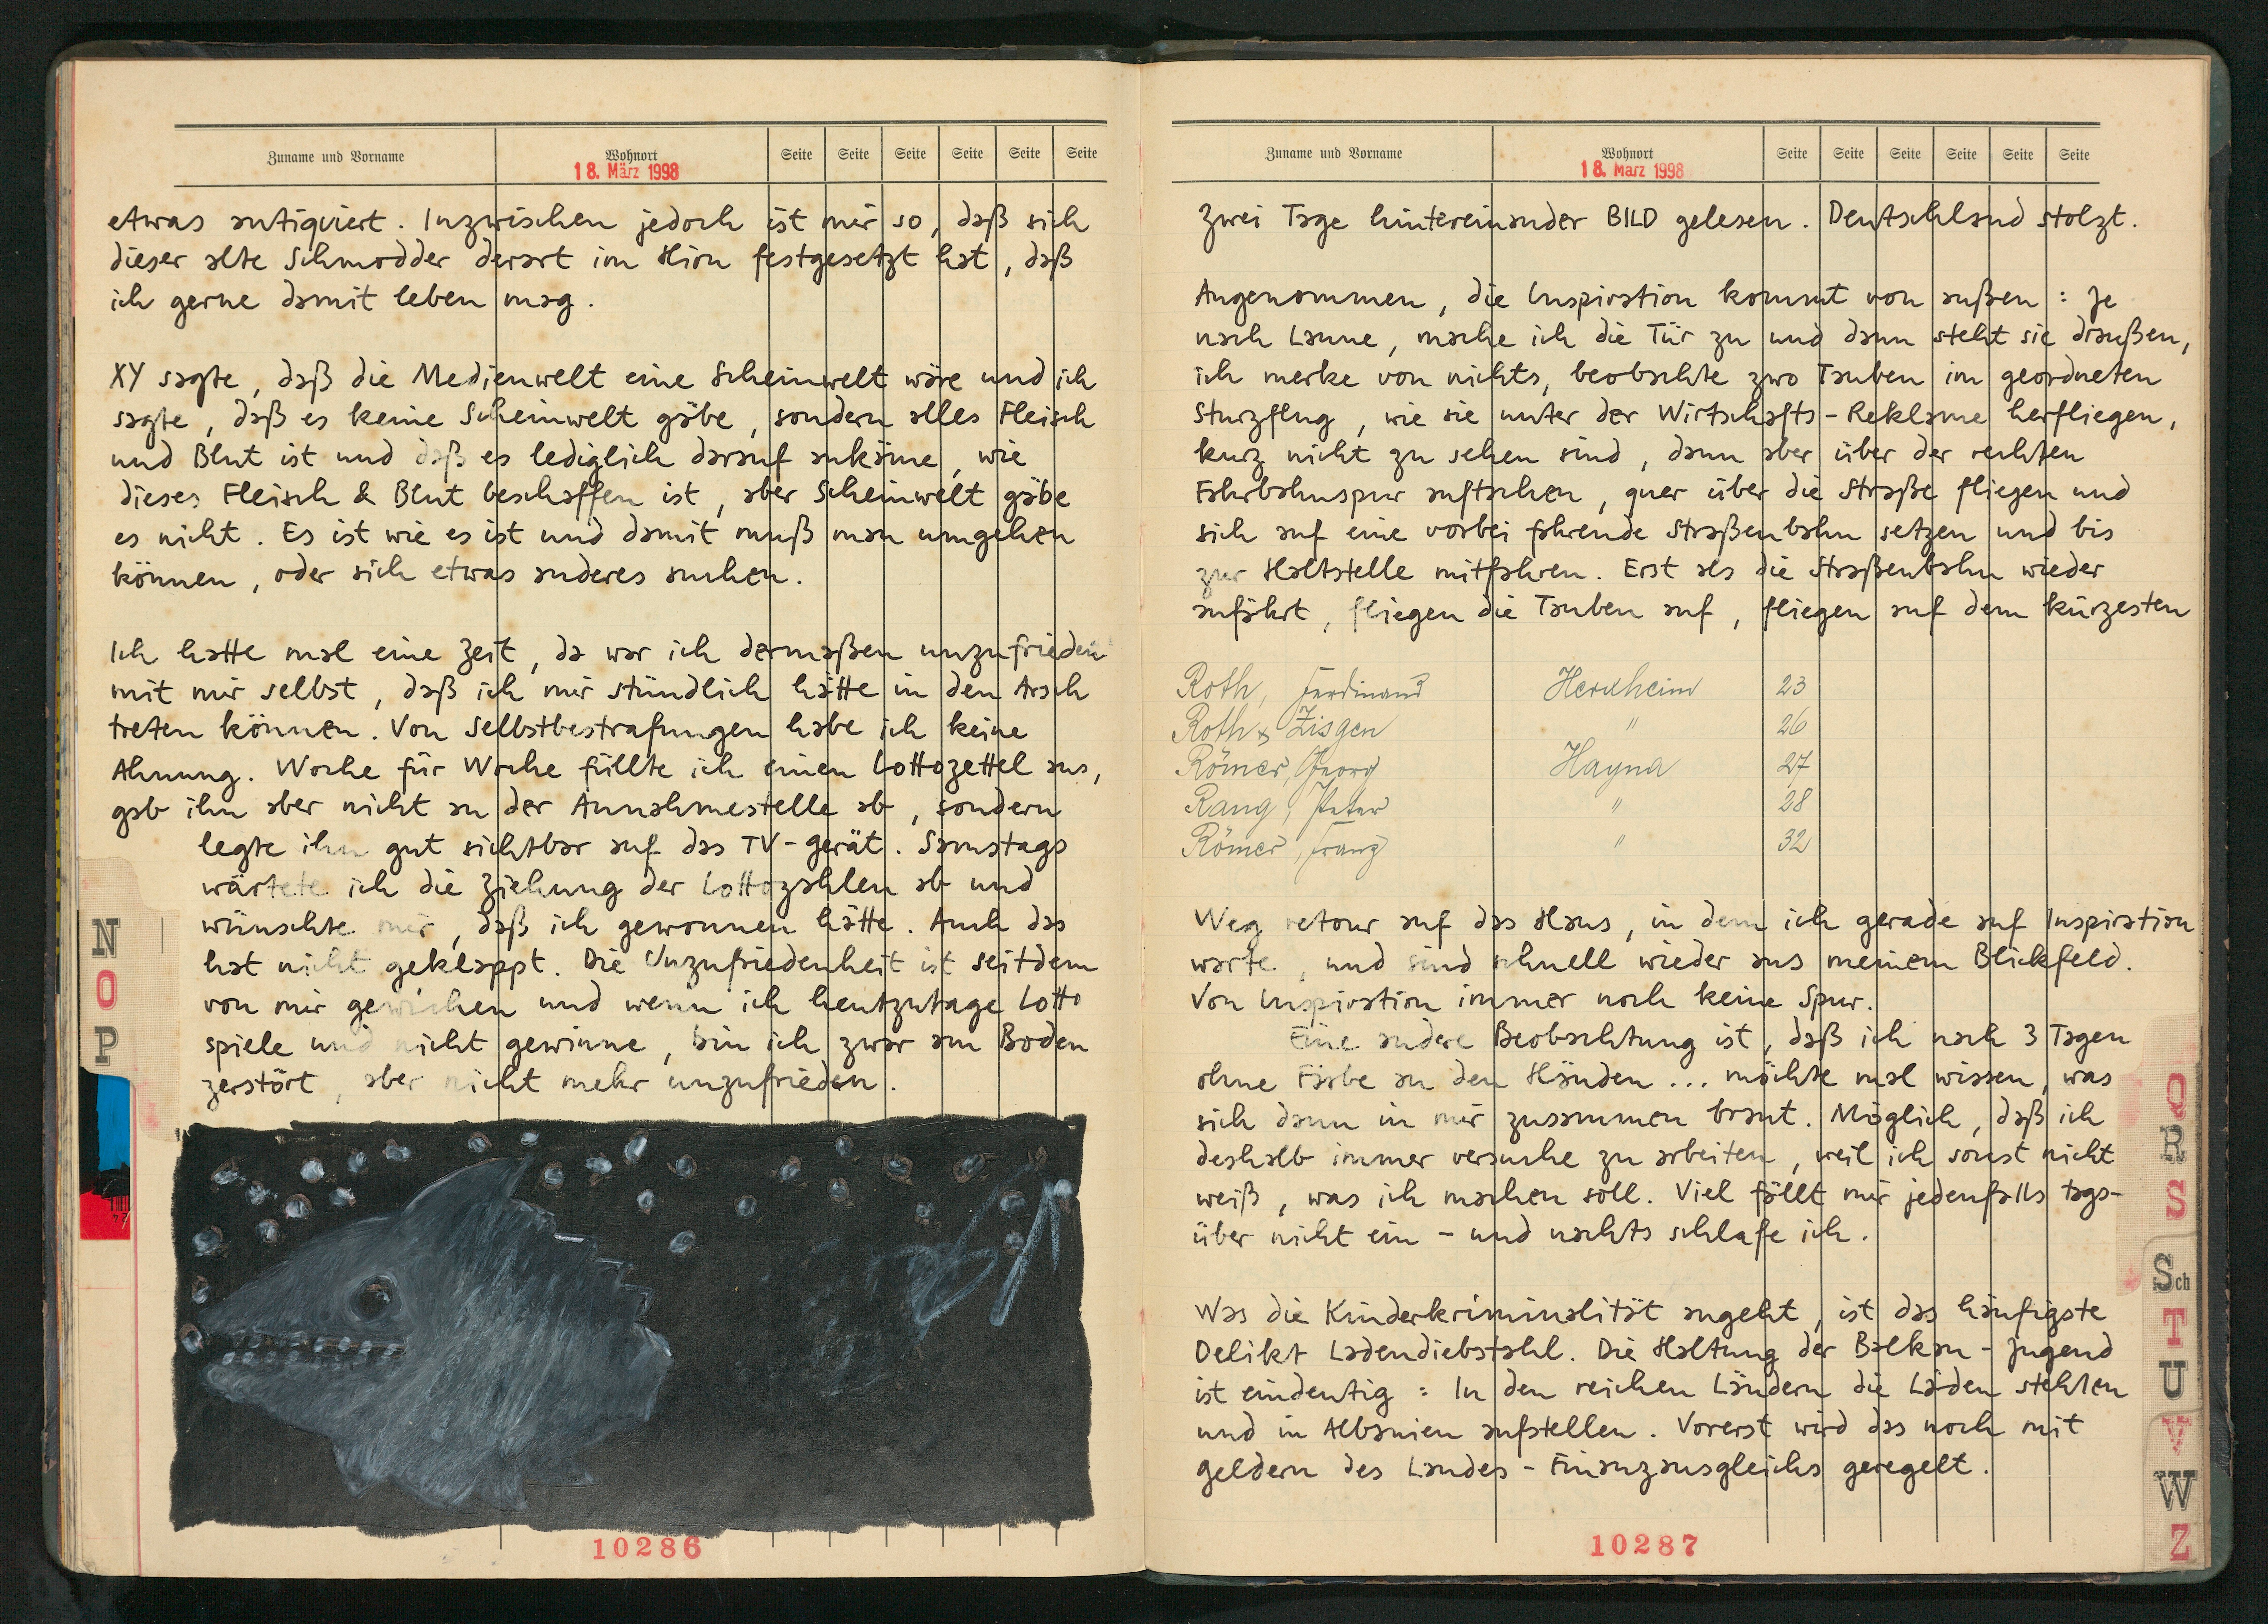 Zuname und Vorname Wohnort Seite Seite Seite Seite Seite Seite
18. März 1998
etwas antiquiert. Inzwischen jedoch ist mir so, daß sich
dieser alte Schmodder derart im Hirn festgesetzt hat, daß
ich gerne damit leben mag.
XY sagte, daß die Medienwelt eine Scheinwelt wäre und ich
sagte, daß es keine Scheinwelt gäbe, sondern alles Fleisch
und Blut ist und daß es lediglich darauf ankäme, wie
dieses Fleisch & Blut beschaffen ist, aber Scheinwelt gäbe
es nicht. Es ist wie es ist und damit muß man umgehen
können, oder sich etwas anderes suchen.
Ich hatte mal eine Zeit, da war ich dermaßen unzufrieden
mit mir selbst, daß ich mir stündlich hätte in den Arsch
treten können. Von Selbstbestrafungen habe ich keine
Ahnung. Woche für Woche füllte ich einen Lottozettel aus,
gab ihn aber nicht an der Annahmestelle ab, sondern
legte ihn gut sichtbar auf das TV-Gerät. Samstags
wärtete ich die Ziehung der Lottozahlen ab und
wünschte mir, daß ich gewonnen hätte. Auch das
hat nicht geklappt. Die Unzufriedenheit ist seitdem
von mir gewichen und wenn ich heutzutage Lotto
spiele und nicht gewinne, bin ich zwar am Boden
zerstört, aber nicht mehr unzufrieden.
N
O
P
10286
Zuname und Vorname Wohnort Seite Seite Seite Seite Seite Seite
18. März 1998
Zwei Tage hintereinander BILD gelesen. Deutschland stolzt.
Angenommen, die Inspiration kommt von außen: Je
nach Laune, mache ich die Tür zu und dann steht sie draußen,
ich merke von nichts, beobachte zwo Tauben im geordneten
Sturzflug, wie sie unter der Wirtschafts-Reklame herfliegen,
kurz nicht zu sehen sind, dann aber über der rechten
Fahrbahnspur auftachen, quer über die Straße fliegen und
sich auf eine vorbei fahrende Straßenbahn setzen und bis
zur Haltstelle mitfahren. Erst als die Straßenbahn wieder
anfährt, fliegen die Tauben auf, fliegen auf dem kürzesten
Roth, Ferdinand Herxheim 23
Roth & Zisgen " 26
Römer, Georg Hayna 27
Rang, Peter " 28
Römer, Franz " 32
Weg retour auf das Haus, in dem ich gerade auf Inspiration
warte, und sind schnell wieder aus meinem Blickfeld.
Von Inspiration immer noch keine Spur.
Eine andere Beobachtung ist, daß ich nach 3 Tagen
ohne Farbe an den Händen ... möchte mal wissen, was
sich dann in mir zusammen braut. Möglich, daß ich
deshalb immer versuche zu arbeiten, weil ich sonst nicht
weiß, was ich machen soll. Viel fällt mir jedenfalls tags-
über nicht ein - und nachts schlafe ich.
Was die Kinderkriminalität angeht, ist das häufigste
Delikt Ladendiebstahl. Die Haltung der Balkan-Jugend
ist eindeutig: In den reichen Ländern die Läden stehlen
und in Albanien aufstellen. Vorerst wird das noch mit
Geldern des Landes-Finanzausgleichs geregelt.
Q
R
S
Sch
T
U
V
W
Z
10287